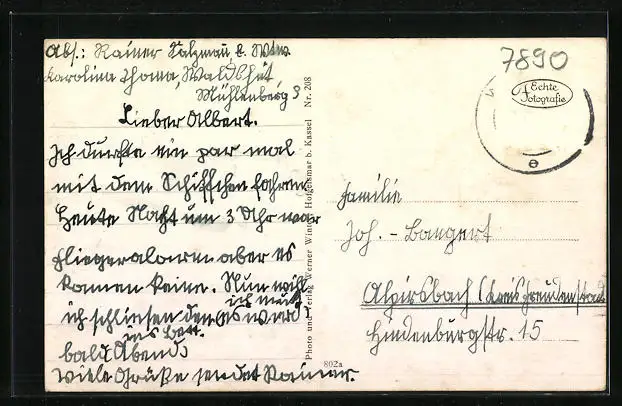 Abs.: Rainer Salzmau b. Wtw.
Karolina Thoma, Waldshut,
Mühlenberg 5
Lieber Albert.
Ich durfte ein par mal
mit dem Schiffchen fahren
Heute Nacht um 3 Uhr war
Fliegeralarm aber es
kamen keine. Nun will
ich schliesen den (es wird
ich muß
ins Bett.
bald Abend)
Viele Grüße sendet Rainer.
Photo und Verlag Werner Hofgeismar b. Kassel Nr. 208
802a
7890
Echte
Fotografie
Familie
Joh. - Bangert
Alpirsbach (Kreis Freudenstadt
Hindenburgstr. 15